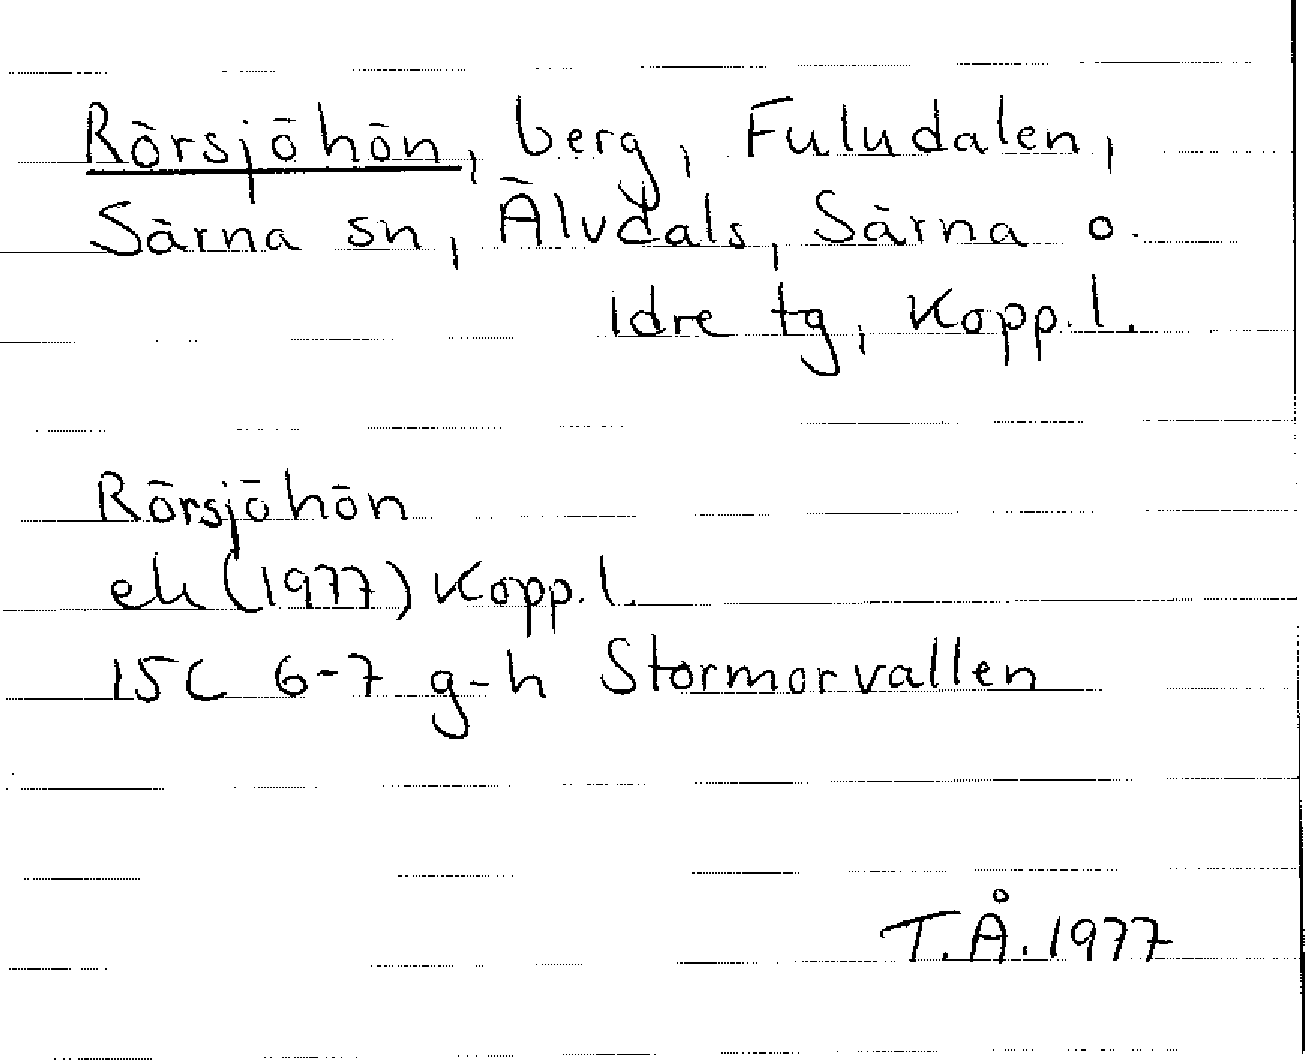 Rörsjöhön, berg, Fuludalen,
Särna sn, Älvdals, Särna o.
Idre tg, Kopp. l.
Rörsjöhön
ek (1977) Kopp. l.
15C 6-7 g-h Stormorvallen
T.Å. 1977